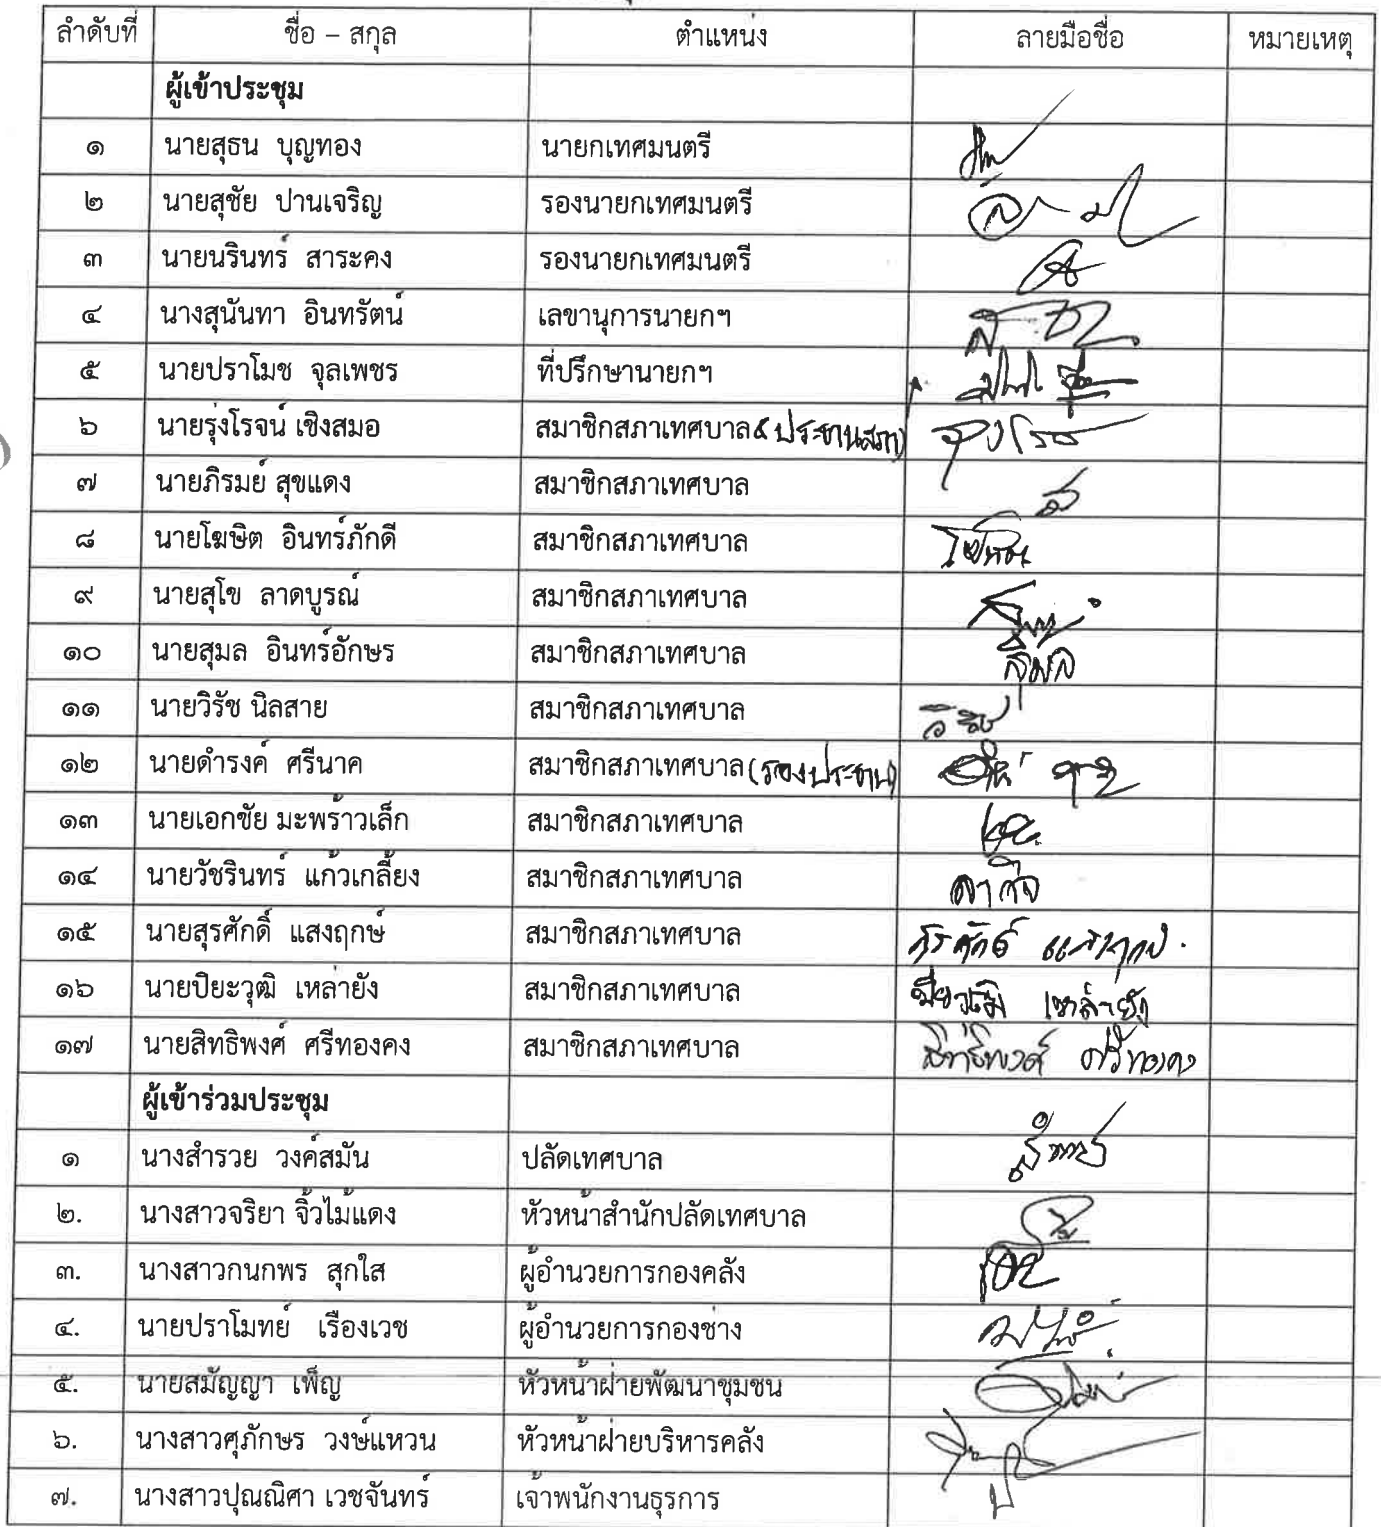 ลำดับที่ ชื่อ – สกุล ตำแหน่ง ลายมือชื่อ หมายเหตุ
ผู้เข้าประชุม
๑ นายสุธน บุญทอง นายกเทศมนตรี
๒ นายสุชัย ปานเจริญ รองนายกเทศมนตรี
๓ นายนรินทร์ สาระคง รองนายกเทศมนตรี
๔ นางสุนันทา อินทรัตน์ เลขานุการนายกฯ
๕ นายปราโมช จุลเพชร ที่ปรึกษานายกฯ
๖ นายรุ่งโรจน์ เชิงสมอ สมาชิกสภาเทศบาล (ประธานสภา) รุ่งโรจน์
๗ นายภิรมย์ สุขแดง สมาชิกสภาเทศบาล
๘ นายโฆษิต อินทร์ภักดี สมาชิกสภาเทศบาล โฆษิต
๙ นายสุโข ลาดบูรณ์ สมาชิกสภาเทศบาล
๑๐ นายสุมล อินทร์อักษร สมาชิกสภาเทศบาล สุมล
๑๑ นายวิรัช นิลสาย สมาชิกสภาเทศบาล วิรัช
๑๒ นายดำรงค์ ศรีนาค สมาชิกสภาเทศบาล (รองประธาน)
๑๓ นายเอกชัย มะพร้าวเล็ก สมาชิกสภาเทศบาล
๑๔ นายวัชรินทร์ แก้วเกลี้ยง สมาชิกสภาเทศบาล
๑๕ นายสุรศักดิ์ แสงฤกษ์ สมาชิกสภาเทศบาล สุรศักดิ์ แสงฤกษ์
๑๖ นายปิยะวุฒิ เหล่ายัง สมาชิกสภาเทศบาล ปิยะวุฒิ เหล่ายัง
๑๗ นายสิทธิพงศ์ ศรีทองคง สมาชิกสภาเทศบาล สิทธิพงศ์ ศรีทองคง
ผู้เข้าร่วมประชุม
๑ นางสำรวย วงค์สมัน ปลัดเทศบาล
๒. นางสาวจริยา จิ้วไม้แดง หัวหน้าสำนักปลัดเทศบาล
๓. นางสาวกนกพร สุกใส ผู้อำนวยการกองคลัง
๔. นายปราโมทย์ เรืองเวช ผู้อำนวยการกองช่าง
๕. นายสมัญญา เพ็ญ หัวหน้าฝ่ายพัฒนาชุมชน
๖. นางสาวศุภักษร วงษ์แหวน หัวหน้าฝ่ายบริหารคลัง
๗. นางสาวปุณณิศา เวชจันทร์ เจ้าพนักงานธุรการ